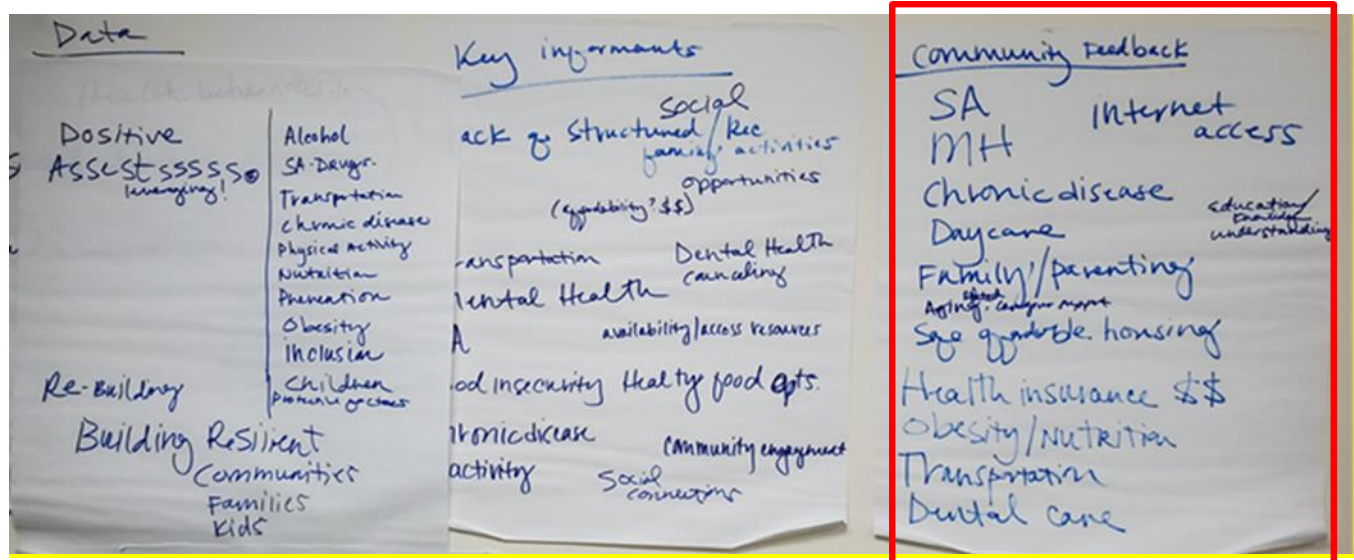 Data
Positive
Assestsssss.
leveraging!
Re-Building
Building Resilient
Communities
Families
Kids
Alcohol
SA-Drugs
Transportation
chronic disease
Physical Activity
Nutrition
Prevention
Obesity
inclusion
Children
Protective factors
Key informants
social
ack of Structured/Rec
family activities
opportunities
(affordability? $$)
ransportation
Dental Health
counceling
ental Health
availability/access resources
A
od insecurity Healty food opts.
hronic disease
community engagement
activity
Social
connections
Community Feedback
SA
internet
access
MH
Chronic disease
education/
understanding
Daycare
Family/parenting
Aging caregiver support
Safe affordable housing
Health insurance $$
Obesity/Nutrition
Transportation
Dental care